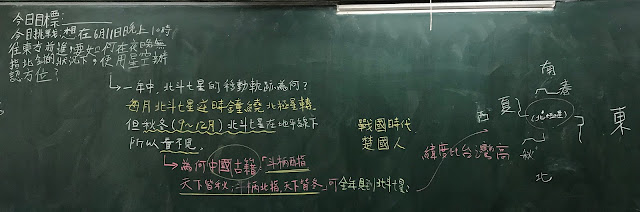 今日目標:
今日挑戰:想在6月11日晚上10時
往東方前進,要如何在夜晚無
指北針的狀況下,使用星空辨
認方位?
一年中,北斗七星的移動軌跡為何?
每月北斗七星逆時鐘繞北極星轉
但秋冬(9~12月)北斗七星在地平線下
所以看不見
為何中國古籍「斗柄西指
天下皆秋,斗柄北指,天下皆冬」可全年見到北斗七星
戰國時代
楚國人
緯度比台灣高
南
春
夏
西
東
秋
北